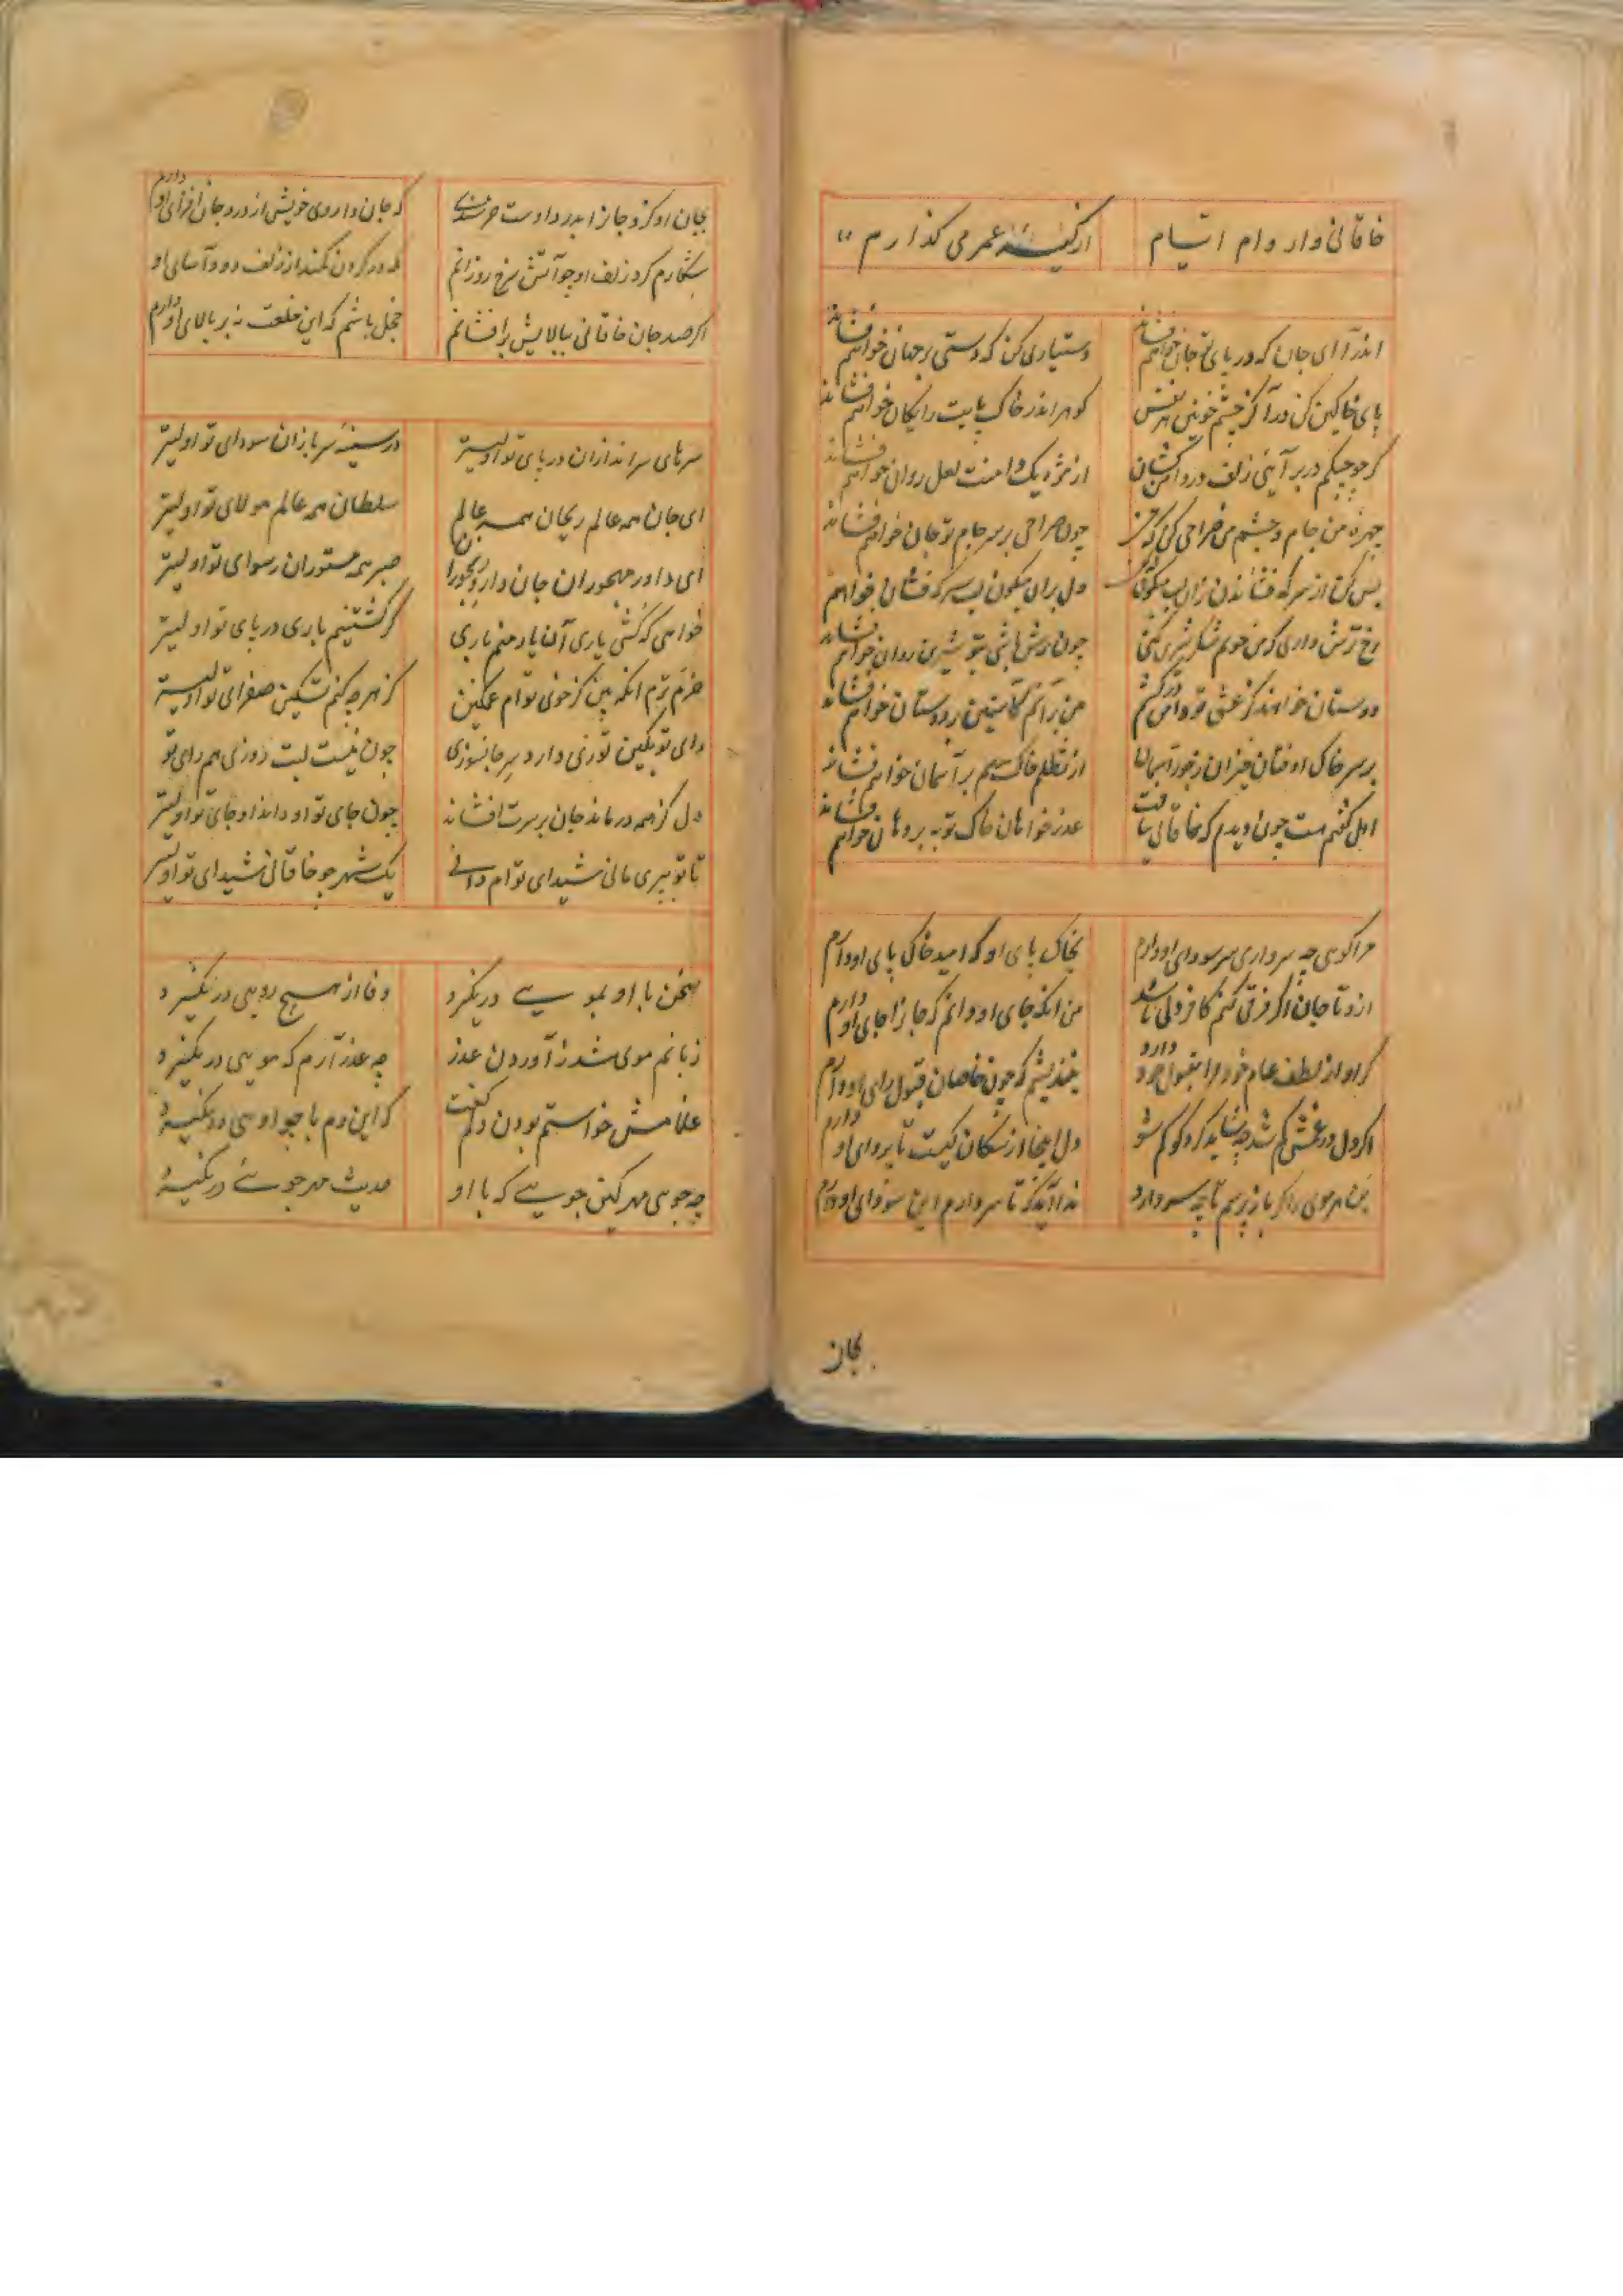 خاقانی وار وام ایام از کیسه عمر می گذارم
اندرآ ای جان که در پای تو جان خواهم فشاند دستیاری کن که دستی بر جهان خواهم فشاند
پای خاکین کن درآ کز چشم خونین هر نفس کوهر اندر خاک پایت رایکان خواهم فشاند
کر چو چنکم در بر آیی زلف در دامن کشان از مژه یک دامنت لعل روان خواهم فشاند
چهره من جام و چشم من صراحی کن که من چون صراحی بر سر جام تو جان خواهم فشاند
بس کن از سرکه فشاندن زان لب میکون دل بران میکون لب سرکه فشان خواهم
رخ ترش داری که من خوبم شکر شیرین کنی چون ترش باشی بتو شیرین روان خواهم فشاند
دوستان خواهند کز عشق تو دامن درکشم من برآنم کاستین بر دوستان خواهم فشاند
بر سر خاک اوفتان خیزان ز جور آسمان از تظلم خاک هم بر آسمان خواهم فشاند
اهل کفتم هست چون دیدم که خاقانی نیافت عذر خواهان خاک توبه بر دهان خواهم فشاند
مرا کویی چه سر داری سر سودای او دارم بخاک پای او کامید خاک پای او دارم
ازو تا جان اکر فرقی کنم کافر دلی باشد من آنکه جای او دانم که جانرا جای او دارم
کر او از لطف عام خود مرا مقبول خود دارد نیندیشم که چون خاصان قبول رای او دارم
اکر دل در غمش کم شد چه شاید کرد کو کم شو دل اینجا از سکان کیست تا پروای او دارم
بن هر موی را کر بازپرسم تا چه سر دارد ندا آید که تا سر دارم این سودای او دارم
بجان
بجان او کزو جانرا بدرد اوست خرسندی که جان داروی خویش از درد جان افزای او دارم
شکارم کرد زلف او چو آتش سرخ رو زانم که در کردن کمند از زلف دودآسای او
اکر صد جان خاقانی ببالایش برافشانم خجل باشم که این خلعت نه بر بالای او دارم
سرهای سراندازان در پای تو اولیتر در سینه سربازان سودای تو اولیتر
ای جان همه عالم ریحان همه عالم سلطان همه عالم مولای تو اولیتر
ای داور مهجوران جان داروی رنجوران صبر همه مستوران رسوای تو اولیتر
خواهی که کشی یاری آن یار منم باری کر کشتنیم باری در پای تو اولیتر
خرم ترم آنکه بین کز خوی توام غمکین کز هرچه کنم تسکین صفرای تو اولیتر
رای تو بکین توزی دارد سر جانسوزی چون نیست لبت روزی هم رای تو
دل کز همه درماند جان بر سرت افشاند چون جای تو او داند او جای تو اولیتر
تا تو بپری مانی شیدای توام دانی یک شهر چو خاقانی شیدای تو اولیتر
سخن با او بمویی درنکیرد وفا از هیچ رویی درنکیرد
زبانم موی شد ز آوردن عذر چه عذر آرم که مویی درنکیرد
غلامش خواستم بودن دلم کفت که این دم با چو اویی درنکیرد
چه جویی مهر کین جویی که با او حدیث مهر جویی درنکیرد